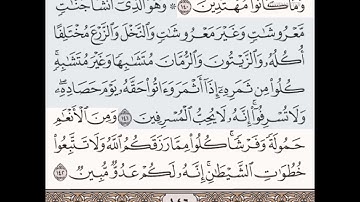 وَمَا كَانُوا۟ مُهْتَدِينَ ١٤٠ ۞ وَهُوَ ٱلَّذِىٓ أَنشَأَ جَنَّٰتٍ
مَّعْرُوشَٰتٍ وَغَيْرَ مَعْرُوشَٰتٍ وَٱلنَّخْلَ وَٱلزَّرْعَ مُخْتَلِفًا
أُكُلُهُۥ وَٱلزَّيْتُونَ وَٱلرُّمَّانَ مُتَشَٰبِهًا وَغَيْرَ مُتَشَٰبِهٍ ۚ
كُلُوا۟ مِن ثَمَرِهِۦٓ إِذَآ أَثْمَرَ وَءَاتُوا۟ حَقَّهُۥ يَوْمَ حَصَادِهِۦ ۖ
وَلَا تُسْرِفُوٓا۟ ۚ إِنَّهُۥ لَا يُحِبُّ ٱلْمُسْرِفِينَ ١٤١ وَمِنَ ٱلْأَنْعَٰمِ
حَمُولَةً وَفَرْشًا ۚ كُلُوا۟ مِمَّا رَزَقَكُمُ ٱللَّهُ وَلَا تَتَّبِعُوا۟
خُطُوَٰتِ ٱلشَّيْطَٰنِ ۚ إِنَّهُۥ لَكُمْ عَدُوٌّ مُّبِينٌ ١٤٢
١٤٦